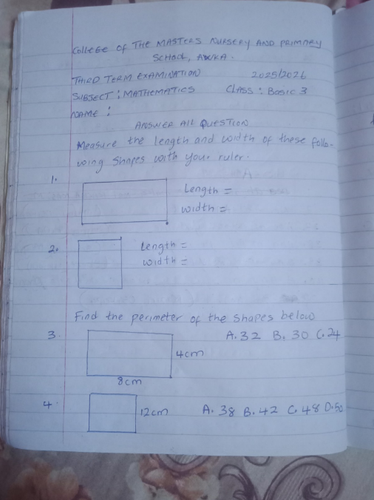 COLLEGE OF THE MASTERS NURSERY AND PRIMREY
SCHOOL, AWKA.
THIRD TERM EXAMINATION 2025/2026
SUBJECT : MATHEMATICS CLASS : BASIC 3
NAME :
ANSWER ALL QUESTION
Measure the length and width of these follo-
wing shapes with your ruler.
1. Length =
width =
2. Length =
width =
Find the perimeter of the shapes below
3. A. 32 B. 30 C. 24
4cm
8cm
4. 12cm A. 38 B. 42 C. 48 D. 50